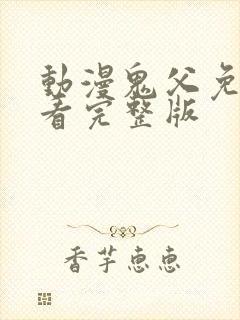 動漫鬼父免
看完整版
香芋恵恵